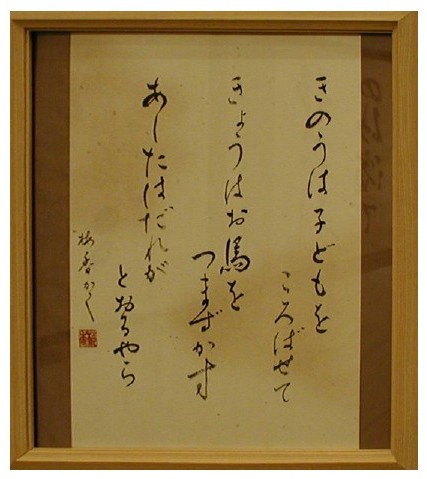 きのうは子どもを
ころばせて
きょうはお馬を
つまずかす
あしたはだれが
とおるやら
梅香かく